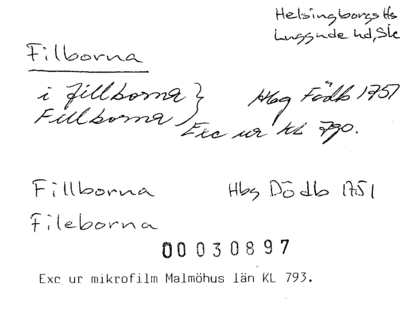 Helsingborgs lfs
Luggude hd, Sk
Filborna
i Fillborna } Hbg Födb 1751
Fillborna } Exc ur KL 790.
Fillborna Hbg Dödb 1751
Fileborna
00030897
Exc ur mikrofilm Malmöhus län KL 793.